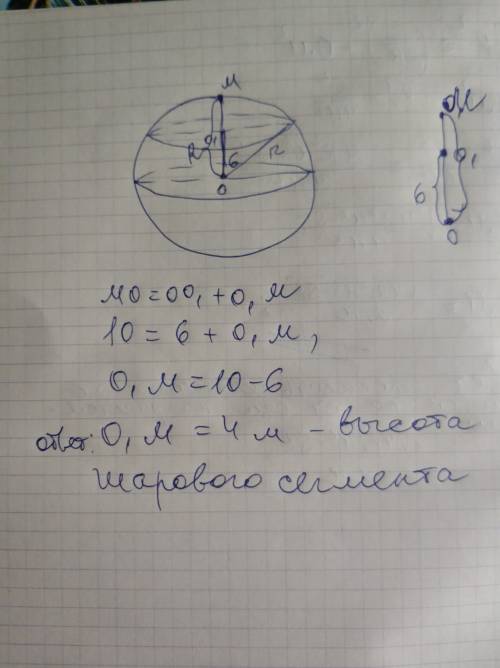 M
O₁
R
6
R
O
M
O₁
6
O
MO = OO₁ + O₁M
10 = 6 + O₁M,
O₁M = 10 - 6
ответ: O₁M = 4 м - высота
шарового сегмента